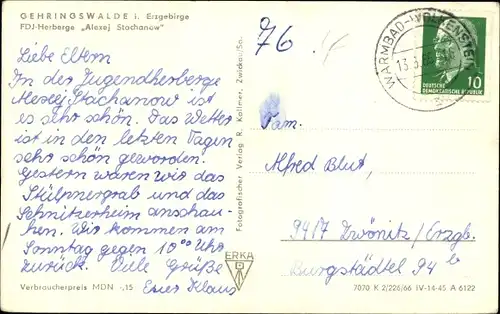 GEHRINGSWALDE i. Erzgebirge
FDJ-Herberge „Alexej Stachanow"
Liebe Eltern
In der Jugendherberge
Alexej Stachanow ist
es sehr schön. Das Wetter
ist in den letzten Tagen
sehr schön geworden.
Gestern waren wir das
Stülpnergrab und das
Schnitzerheim anschau-
hen. Wir kommen am
Sonntag gegen 10 00 Uhr
zurück. Viele Grüße
Euer Klaus
Verbraucherpreis MDN -,15
Fotografischer Verlag R. Kallmer, Zwickau/Sa.
ERKA
76
WARMBAD-WOLKENSTEIN
13.3.
10
DEUTSCHE
DEMOKRATISCHE REPUBLIK
Fam.
Alfred Blut,
9417 Zwönitz/Erzgb.
Burgstädtel 94 b
7070 K 2/226/66 IV-14-45 A 6122